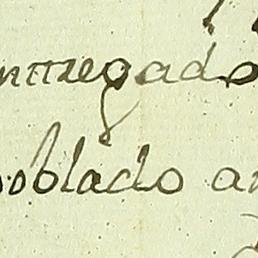 ntregado
poblado an